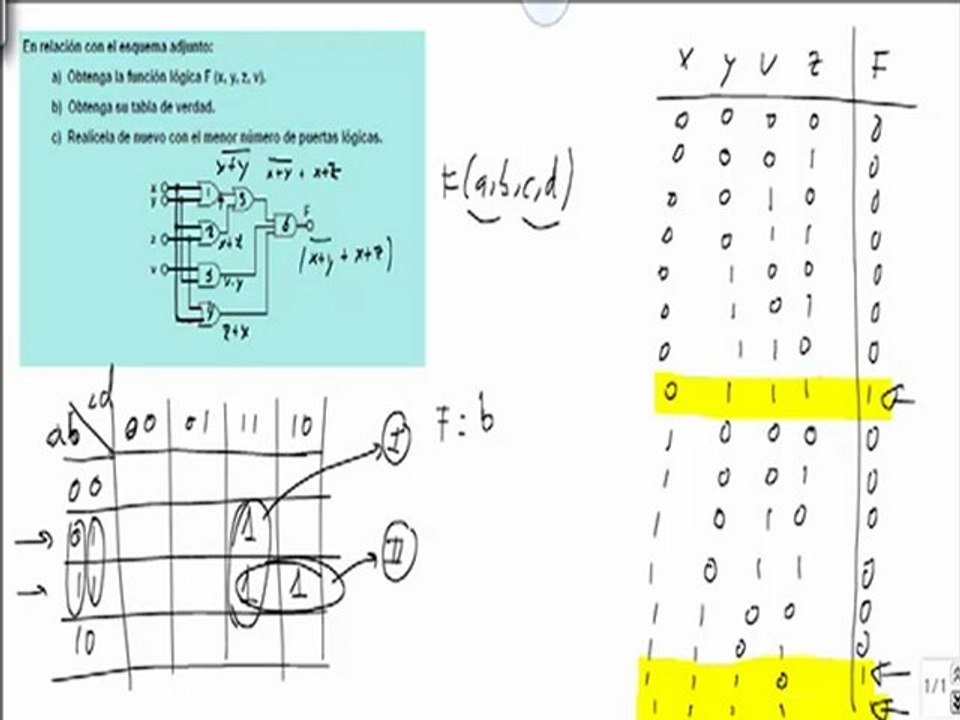 En relación con el esquema adjunto:
a) Obtenga la función lógica F (x, y, z, v).
b) Obtenga su tabla de verdad.
c) Realícela de nuevo con el menor número de puertas lógicas.
x+y x+y + x+z
x
y
z
v
1
2
3
4
5
6
F
x+z
v.y
z+x
(x+y + x+z)
F(a,b,c,d)
ab cd 00 01 11 10
00
01 1
11 1 1
10
I
II
F: b
x y v z F
0 0 0 0 0
0 0 0 1 0
0 0 1 0 0
0 0 1 1 0
0 1 0 0 0
0 1 0 1 0
0 1 1 0 0
0 1 1 1 1
1 0 0 0 0
1 0 0 1 0
1 0 1 0 0
1 0 1 1 0
1 1 0 0 0
1 1 0 1 0
1 1 1 0 1
1 1 1 1
1/1